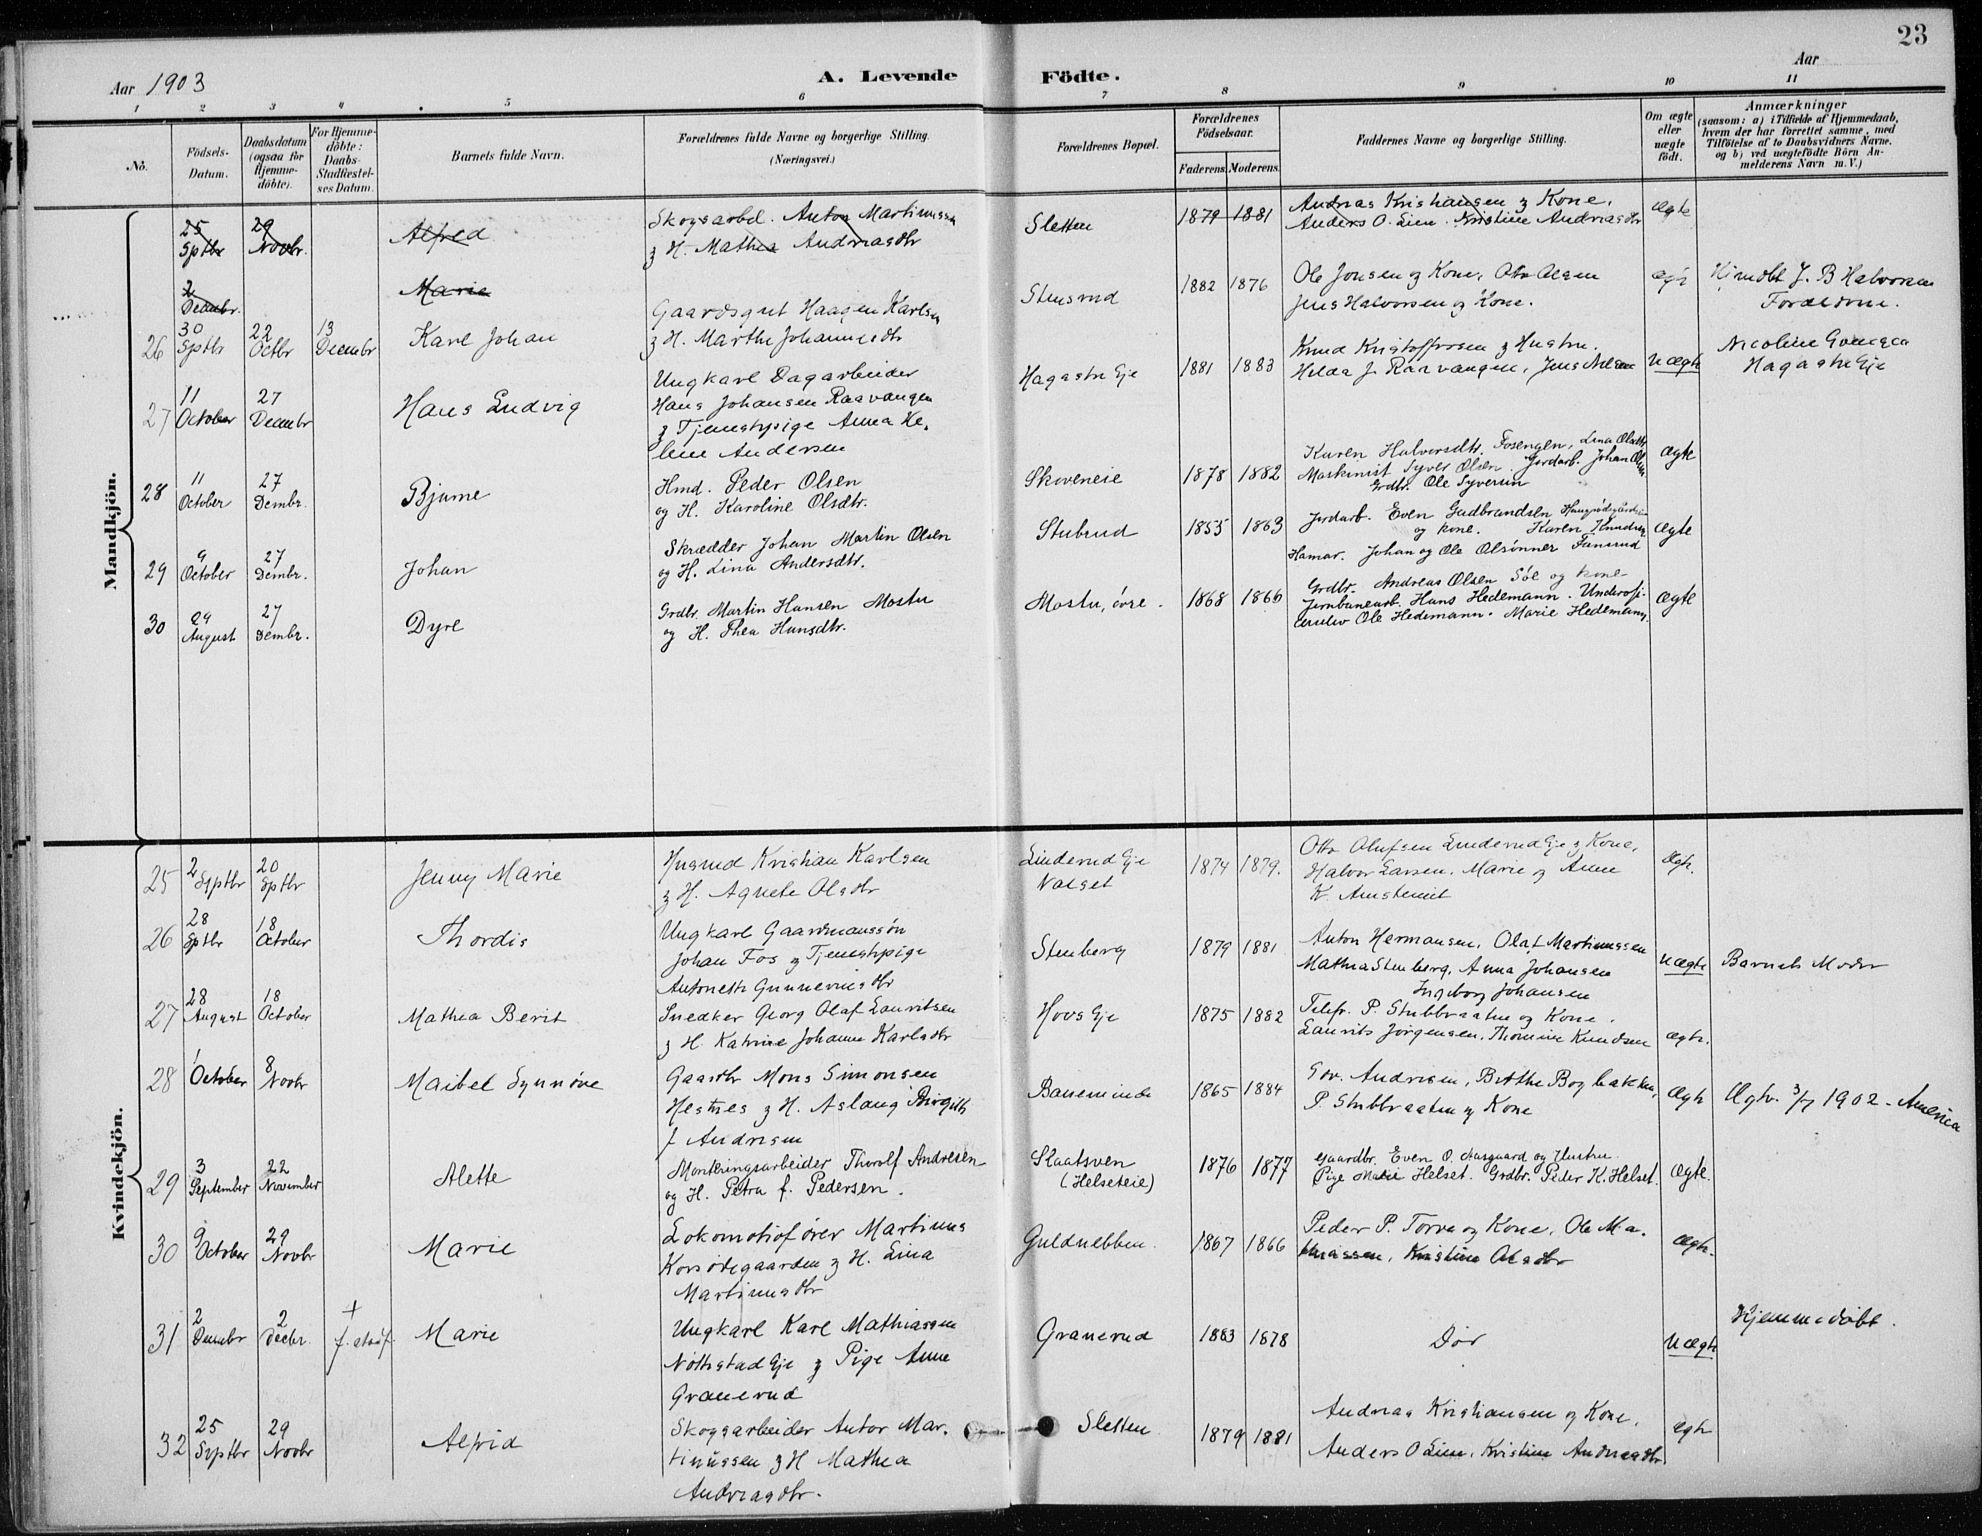 23
Aar 1903
A. Levende Födte.
Aar
1 2 3 4 5 6 7 8 9 10 11
No.
Födsels-Datum.
Daabsdatum (ogsaa for Hjemme-döbte).
For Hjemme-döbte: Daabs-Stadfæstel-ses Datum.
Barnets fulde Navn.
Forældrenes fulde Navne og borgerlige Stilling. (Næringsvei.)
Forældrenes Bopæl.
Forældrenes Födselsaar.
Faderens. Moderens.
Faddernes Navne og borgerlige Stilling.
Om ægte eller uægte födt.
Anmærkninger
(saasom: a) i Tilfælde af Hjemmedaab,
hvem der har forrettet samme, med
Tilföielse af to Daabsvidners Navne.
og b) ved uægtefödte Börn An-
melderens Navn m.V.)
Mandkjön.
25 Sptbr 29 Novbr. Alfred Skogsarbd. Anton Martinussen
& H. Mathea Andreasdtr Sletten 1879 1881 Andreas Kristiansen & Kone,
Anders O. Lien. Kristine Andreasdtr Ægte
2 Decembr. Marie
26 30 Sptbr 22 Octbr 13 Decembr Karl Johan Gaardsgut Haagen Karlsen
& H. Marthe Johannesdtr Stensrud 1882 1876 Ole Jonsen og Kone, Otto Olsen
Jens Halvorsen og Kone. Hjmdbt J. B Halvorsen
Forældrene.
27 11 October 27 Decembr Hans Ludvig Ungkarl Dagarbeider
Hans Johansen Raavangen
& Tjenestpige Anna He-
lene Andersen Hagastu Eje 1881 1883 Knud Kristoffersen & Hustru.
Hilda J. Raavangen, Jens Nilsen Uægte Nicoline
Hagastu Eje
28 11 October 27 Dembr. Bjarne Hmd. Peder Olsen
og H. Karoline Olsdtr. Skoveneie 1878 1882 Karen Halvorsdtr. Fosengen, Lina Olsdtr
Maskinist Syver Olsen. Jordarb. Johan Olsen
Grdbr. Ole Syversen Ægte
29 9 October 27 Dembr. Johan Skrædder Johan Martin Olsen
og H. Lina Andersdtr. Stubrud 1855 1863 Jordarb. Even Gudbrandsen
og kone. Karen Knudsen
Hamar. Johan og Ole Olsønner Fanerud Ægte
30 29 August 27 Dembr. Dyre Grdbr. Martin Hansen Mostu
og H. Thea Hansdtr. Mostu, øvre. 1868 1866 Grdbr. Andreas Olsen Søl og kone
Jernbanearb. Hans Hedemann. Underofi-
cerselev Ole Hedemann. Marie Hedemann. Ægte
Kvindekjön.
25 2 Sptbr 20 Sptbr Jenny Marie Husmd Kristian Karlsen
& H. Agnete Olsdtr Linderud Eje
Valset 1874 1879. Otto Olufsen Linderud Eje & Kone,
Halvor Larsen, Marie & Anne
K. Ægte.
26 28 Sptbr 18 October Thordis Ungkarl Gaardmanssøn
Johan Fos & Tjenestpige
Antonette Gunneriusdtr Stenberg 1879 1881 Anton Hermansen, Olaf Martinussen
Mathea Stenberg, Anna Johansen
Ingeborg Johansen Uægte Barnets Moder
27 28 August 18 October Mathea Berit Snedker Georg Olaf Lauritsen
& H. Katrine Johanne Karlsdtr Hovs Eje 1875 1882 Telefr. P. Stubbraaten og Kone.
Laurits Jørgensen, Thomine Knudsen Ægte.
28 1 October 8 Novbr Maibel Synnøve Gaardbr Mons Simonsen
Hestnes & H. Aslaug Birgith
f Andresen Baneminde 1865 1884 Gov. Andresen, Birthe Bogbakken,
P. Stubbraaten & Kone Ægte Ægtev. 3/7 1902 - America
29 3 September 22 November Alette Monteringsarbeider Thorolf Andresen
og H. Petra f. Pedersen. Skaatsven
(Helseteie) 1876 1877 Gaardbr. Even O. Aasgaard og Hustru
Pige Marie Helset. Grdbr. Peder K. Helset. Ægte.
30 9 October 29 Novbr Marie Lokomotivfører Martinus
Korsødegaarden & H. Lina
Martinusdtr Guldnebben 1867 1866 Peder P. Torva og Kone, Ole Ma-
thiassen, Kristine Olsdtr Ægte.
31 2 Decembr 2 Decbr. + f. stadf. Marie Ungkarl Karl Mathiassen
Nøttestad Eje & Pige Anne
Granerud Granerud 1883 1878 Død Uægte Hjemmedøbt.
32 25 Septbr 29 Novbr Alfrid Skogsarbeider Anton Mar-
tinussen & H Mathea
Andreasdtr. Sletten 1879 1881 Andreas Kristiansen og Kone,
Anders O Lien, Kristine Andreasdtr Ægte